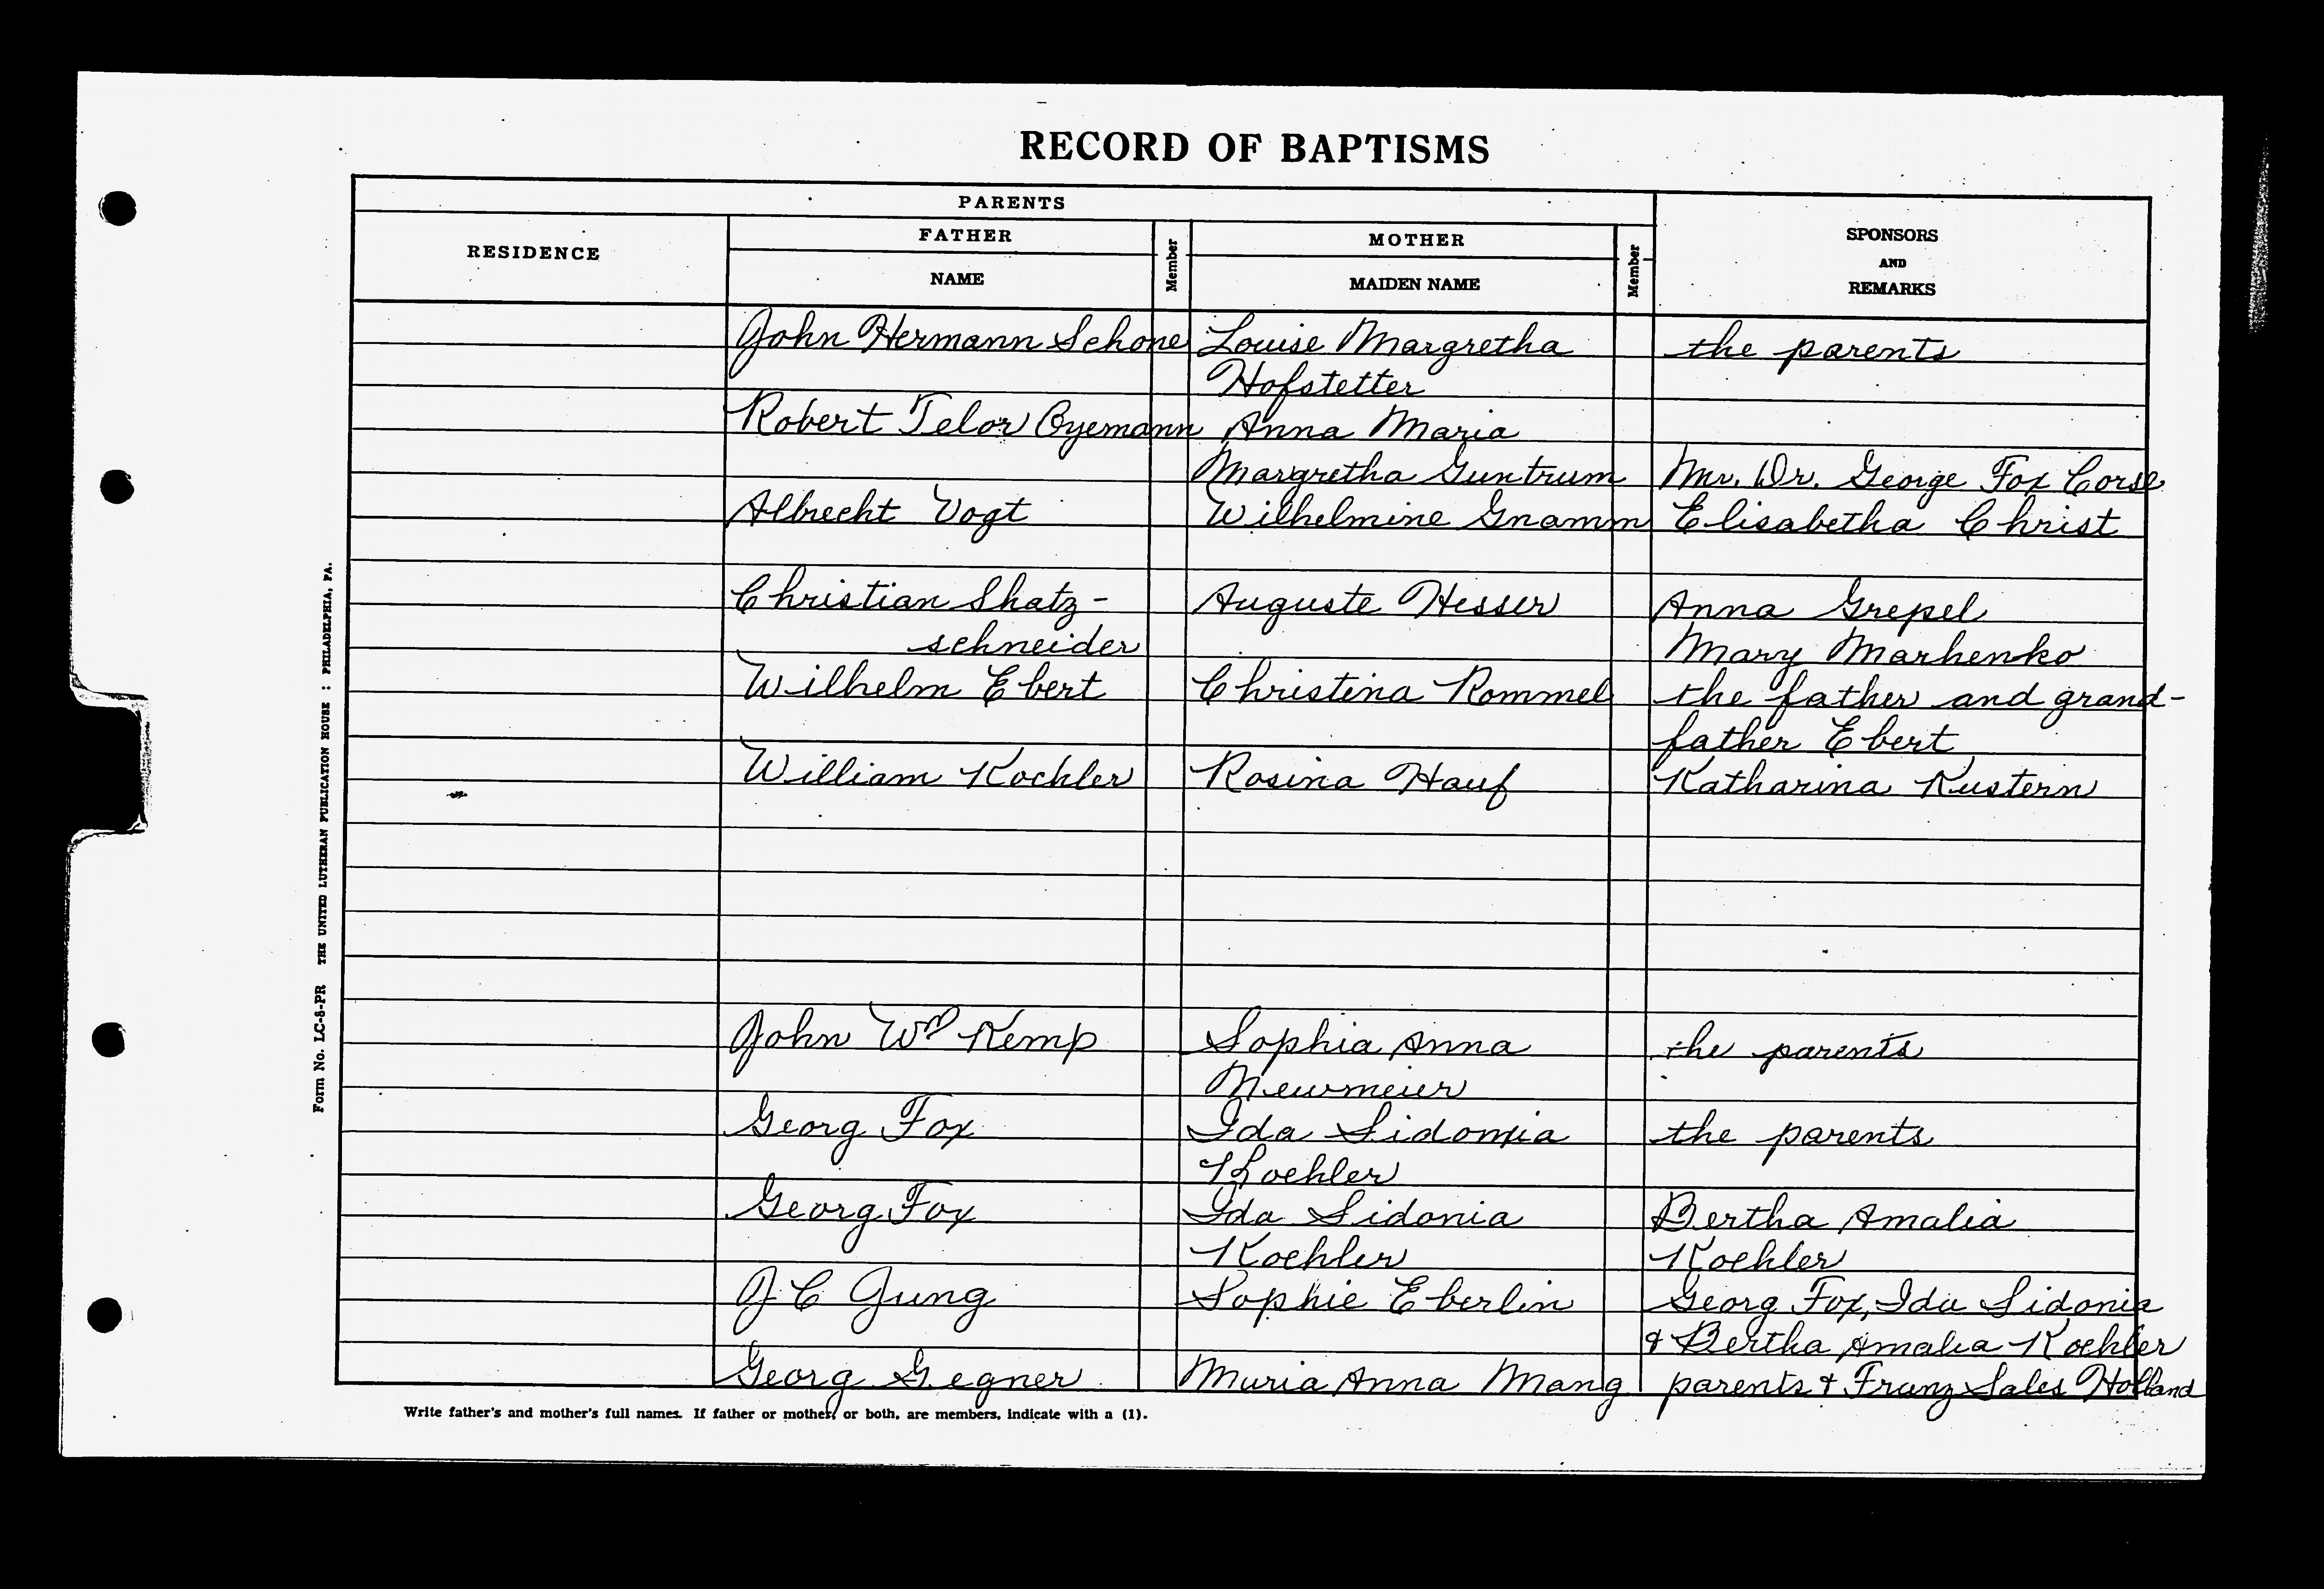 RECORD OF BAPTISMS
PARENTS
RESIDENCE
FATHER
NAME
Member
MOTHER
MAIDEN NAME
Member
SPONSORS
AND
REMARKS
John Hermann Schone Louise Margretha the parents
Hofstetter
Robert Telor Oyemann Anna Maria
Margretha Guntrum Mr. Dr. George Fox Corse
Albrecht Vogt Wilhelmine Gnamm Elisabetha Christ
Christian Shatz- Auguste Hesser Anna Grepel
schneider Mary Marhenko
Wilhelm Ebert Christina Rommel the father and grand-
father Ebert
William Kochler Rosina Hauf Katharina Kustern
John Wm Kemp Sophia Anna the parents
Newmeier
Georg Fox Ida Sidonia the parents
Koehler
Georg Fox Ida Sidonia Bertha Amalia
Koehler Koehler
J C Jung Sophie Eberlin Georg Fox, Ida Sidonia
& Bertha Amalia Koehler
Georg Gegner Muria Anna Mang parents & Franz Sales Holland
Write father's and mother's full names. If father or mother, or both, are members, indicate with a (1).
Form No. LC-8-PR THE UNITED LUTHERAN PUBLICATION HOUSE : PHILADELPHIA, PA.